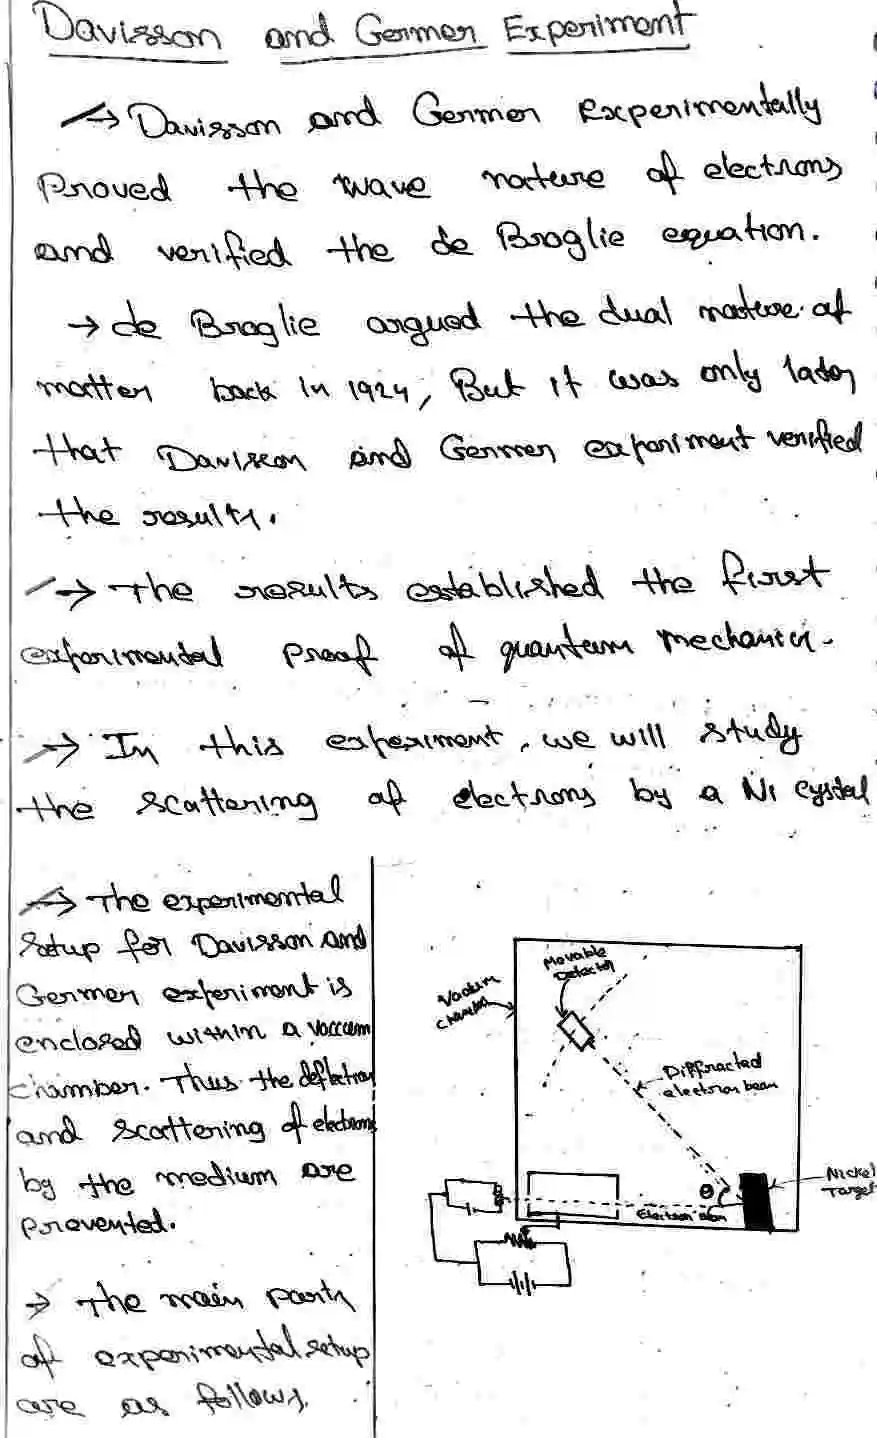 Davisson and Germer Experiment
→ Davisson and Germer Experimentally
Proved the wave nature of electrons
and verified the de Broglie equation.
→ de Broglie argued the dual nature of
matter back in 1924, But it was only later
that Davisson and Germer experiment verified
the results.
→ The results established the first
experimental proof of quantum mechanics.
→ In this experiment, we will study
the scattering of electrons by a Ni cystal
→ The experimental
Setup for Davisson and
Germer experiment is
enclosed within a vaccum
chamber. Thus the deflection
and scattering of electrons
by the medium are
prevented.
→ The main parts
of experimental setup
are as follows.
Movable
Detector
Vaccum
chamber
Diffracted
electron beam
Nickel
Target
θ
Electron beam